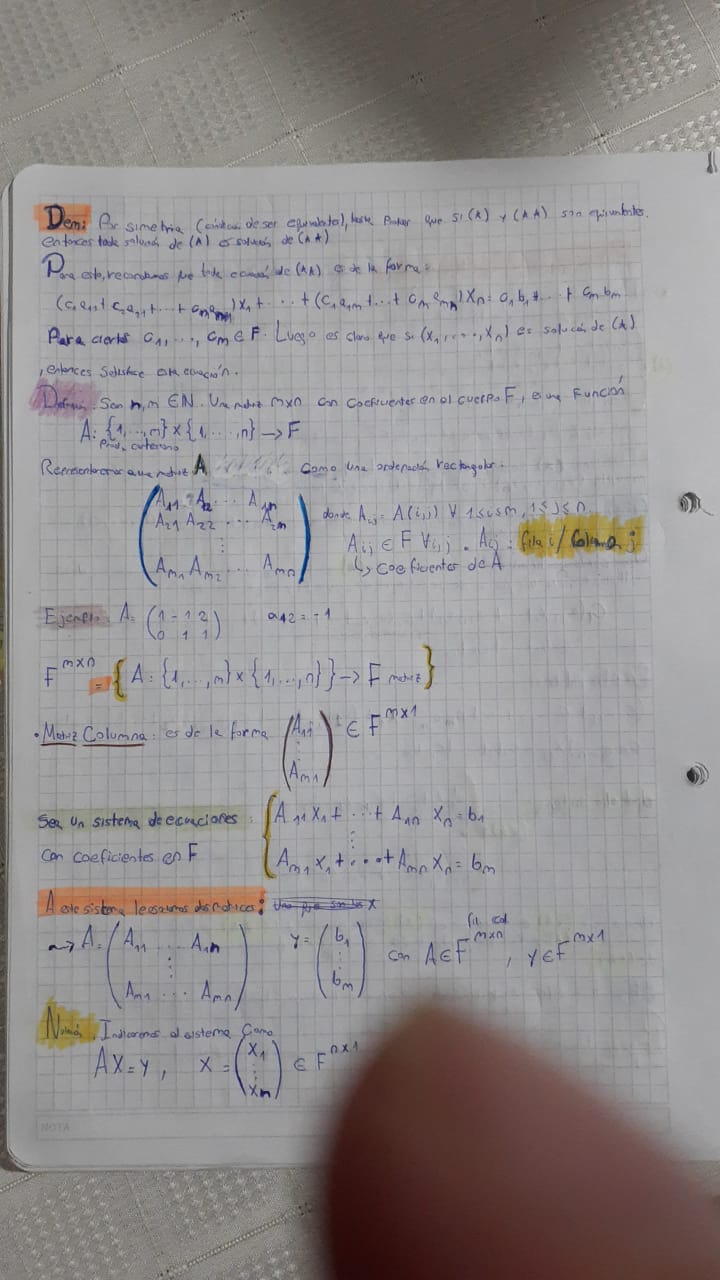 Dem: Por simetría (       de ser equivalentes), basta probar que si (A) y (AA) son equivalentes.
entonces toda solución de (A) es solución de (AA)
Para esto, recordemos que toda ecuación de (AA) es de la forma:
(C₁a₁₁+ C₂a₂₁+ ...+ Cₘaₘ₁)X₁+ ... + (C₁a₁ₙ+...+ Cₘaₘₙ)Xₙ= C₁b₁+...+ Cₘbₘ
Para ciertos C₁, ..., Cₘ ∈ F. Luego es claro que si (X₁, ..., Xₙ) es solución de (A)
, entonces satisface esta ecuación.
Definición. Sean n, m ∈ ℕ. Una matriz m×n con coeficientes en el cuerpo F, es una Función
A: {1, ..., m} × {1, ..., n} → F
Prod. cartesiano
Representaremos a una matriz A como una ordenación rectangular.
A₁₁ A₁₂ ... A₁ₙ
A₂₁ A₂₂ ... A₂ₙ donde Aᵢⱼ= A(i,j) ∀ 1≤i≤m, 1≤j≤n
⋮ Aᵢⱼ ∈ F ∀i,j. Aᵢⱼ: fila i/Columna j
Aₘ₁ Aₘ₂ ... Aₘₙ ↳ coeficientes de A
Ejemplo. A= (1 -1 2 a₁₂= -1
0 1 1)
Fᵐˣⁿ = {A: {1, ..., m} × {1, ..., n}} → F matriz}
• Matriz Columna: es de la forma (A₁₁ ∈ Fᵐˣ¹
⋮
Aₘ₁)
Sea un sistema de ecuaciones: {A₁₁X₁+ ...+ A₁ₙ Xₙ= b₁
⋮
Con coeficientes en F Aₘ₁X₁+...+Aₘₙ Xₙ= bₘ
A este sistema le asociamos dos matrices:
fil. col
→ A= (A₁₁ ... A₁ₙ Y= (b₁ con A∈Fᵐˣⁿ, Y∈Fᵐˣ¹
⋮ ⋮
Aₘ₁ ... Aₘₙ) bₘ)
Notación. Indicaremos al sistema como
AX=Y, X= (X₁ ∈ Fⁿˣ¹
⋮
Xₙ)
NOTA